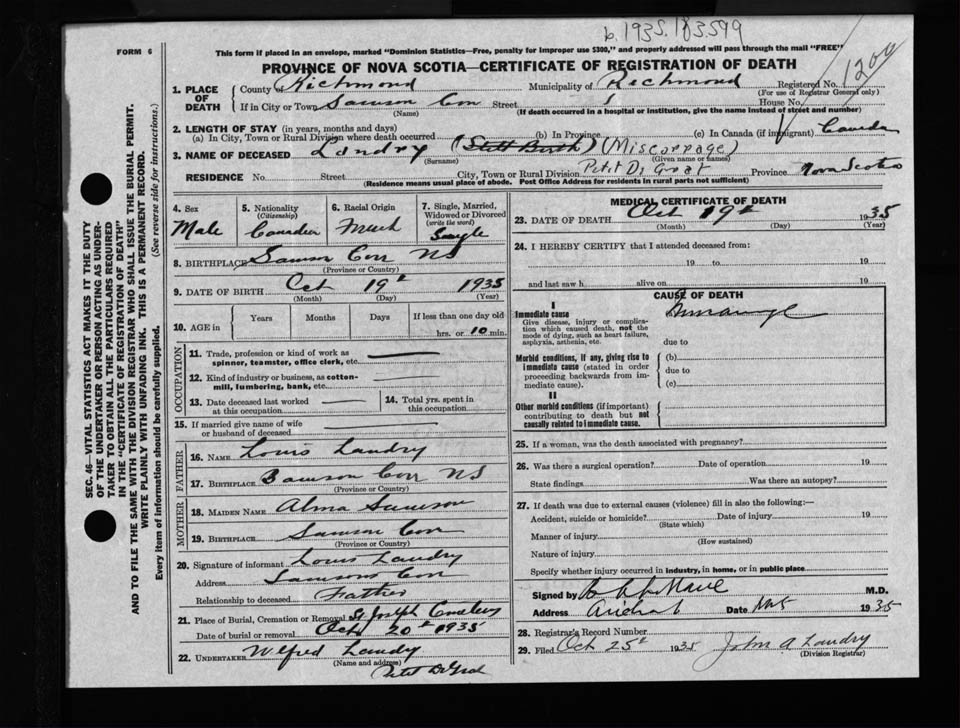 b. 1935. 183599
FORM 6
This form if placed in an envelope, marked "Dominion Statistics—Free, penalty for improper use $300," and properly addressed will pass through the mail "FREE"
PROVINCE OF NOVA SCOTIA—CERTIFICATE OF REGISTRATION OF DEATH
1209
1. PLACE OF DEATH
County of Richmond Municipality of Richmond Registered No.
(For use of Registrar General only)
If in City or Town Samson Cov Street House No.
(Name) (If death occurred in a hospital or institution, give the name instead of street and number)
2. LENGTH OF STAY (in years, months and days)
(a) In City, Town or Rural Division where death occurred (b) In Province (c) In Canada (if immigrant) Canada
3. NAME OF DECEASED Landry (Still Birth) (Miscarrage)
(Surname) (Given name or names)
RESIDENCE No. Street City, Town or Rural Division Petit De Grat Province Nova Scotia
(Residence means usual place of abode. Post Office Address for residents in rural parts not sufficient)
4. Sex Male
5. Nationality (Citizenship)
6. Racial Origin
7. Single, Married, Widowed or Divorced (write the word) Single
8. BIRTHPLACE Samson Cov NS
(Province or Country)
9. DATE OF BIRTH Oct 19th 1935
(Month) (Day) (Year)
10. AGE in Years Months Days If less than one day old
hrs. or 10 min.
OCCUPATION
11. Trade, profession or kind of work as spinner, teamster, office clerk, etc.
12. Kind of industry or business, as cotton-mill, lumbering, bank, etc.
13. Date deceased last worked at this occupation
14. Total yrs. spent in this occupation
15. If married give name of wife or husband of deceased
FATHER
16. NAME Louis Landry
17. BIRTHPLACE Samson Cov NS
(Province or Country)
MOTHER
18. MAIDEN NAME Alma Samson
19. BIRTHPLACE Samson Cov
(Province or Country)
20. Signature of informant Louis Landry
Address Samsons Cov
Relationship to deceased Father
21. Place of Burial, Cremation or Removal St Joseph Cemetery
Date of burial or removal Oct 20th 1935
22. UNDERTAKER Wilfred Landry
(Name and address)
Petit De Grat
MEDICAL CERTIFICATE OF DEATH
23. DATE OF DEATH Oct 19th 1935
(Month) (Day) (Year)
24. I HEREBY CERTIFY that I attended deceased from:
19 to 19
and last saw h alive on 19
CAUSE OF DEATH
I
Immediate cause
Give disease, injury or complication which caused death, not the mode of dying, such as heart failure, asphyxia, asthenia, etc.
due to
Morbid conditions, if any, giving rise to immediate cause (stated in order proceeding backwards from immediate cause).
(b)
due to
(c)
II
Other morbid conditions (if important) contributing to death but not causally related to immediate cause.
25. If a woman, was the death associated with pregnancy?
26. Was there a surgical operation? Date of operation 19
State findings Was there an autopsy?
27. If death was due to external causes (violence) fill in also the following:—
Accident, suicide or homicide? Date of injury 19
(State which)
Manner of injury
(How sustained)
Nature of injury
Specify whether injury occurred in industry, in home, or in public place
Signed by M.D.
Address Arichat Date 1935
28. Registrar's Record Number
29. Filed Oct 25th 1935 John A Landry
(Division Registrar)
SEC. 46—VITAL STATISTICS ACT MAKES IT THE DUTY OF THE UNDERTAKER OR PERSON ACTING AS UNDERTAKER TO OBTAIN ALL THE PARTICULARS REQUIRED IN THE "CERTIFICATE OF REGISTRATION OF DEATH" AND TO FILE THE SAME WITH THE DIVISION REGISTRAR WHO SHALL ISSUE THE BURIAL PERMIT.
WRITE PLAINLY WITH UNFADING INK. THIS IS A PERMANENT RECORD.
Every item of information should be carefully supplied. (See reverse side for instructions.)